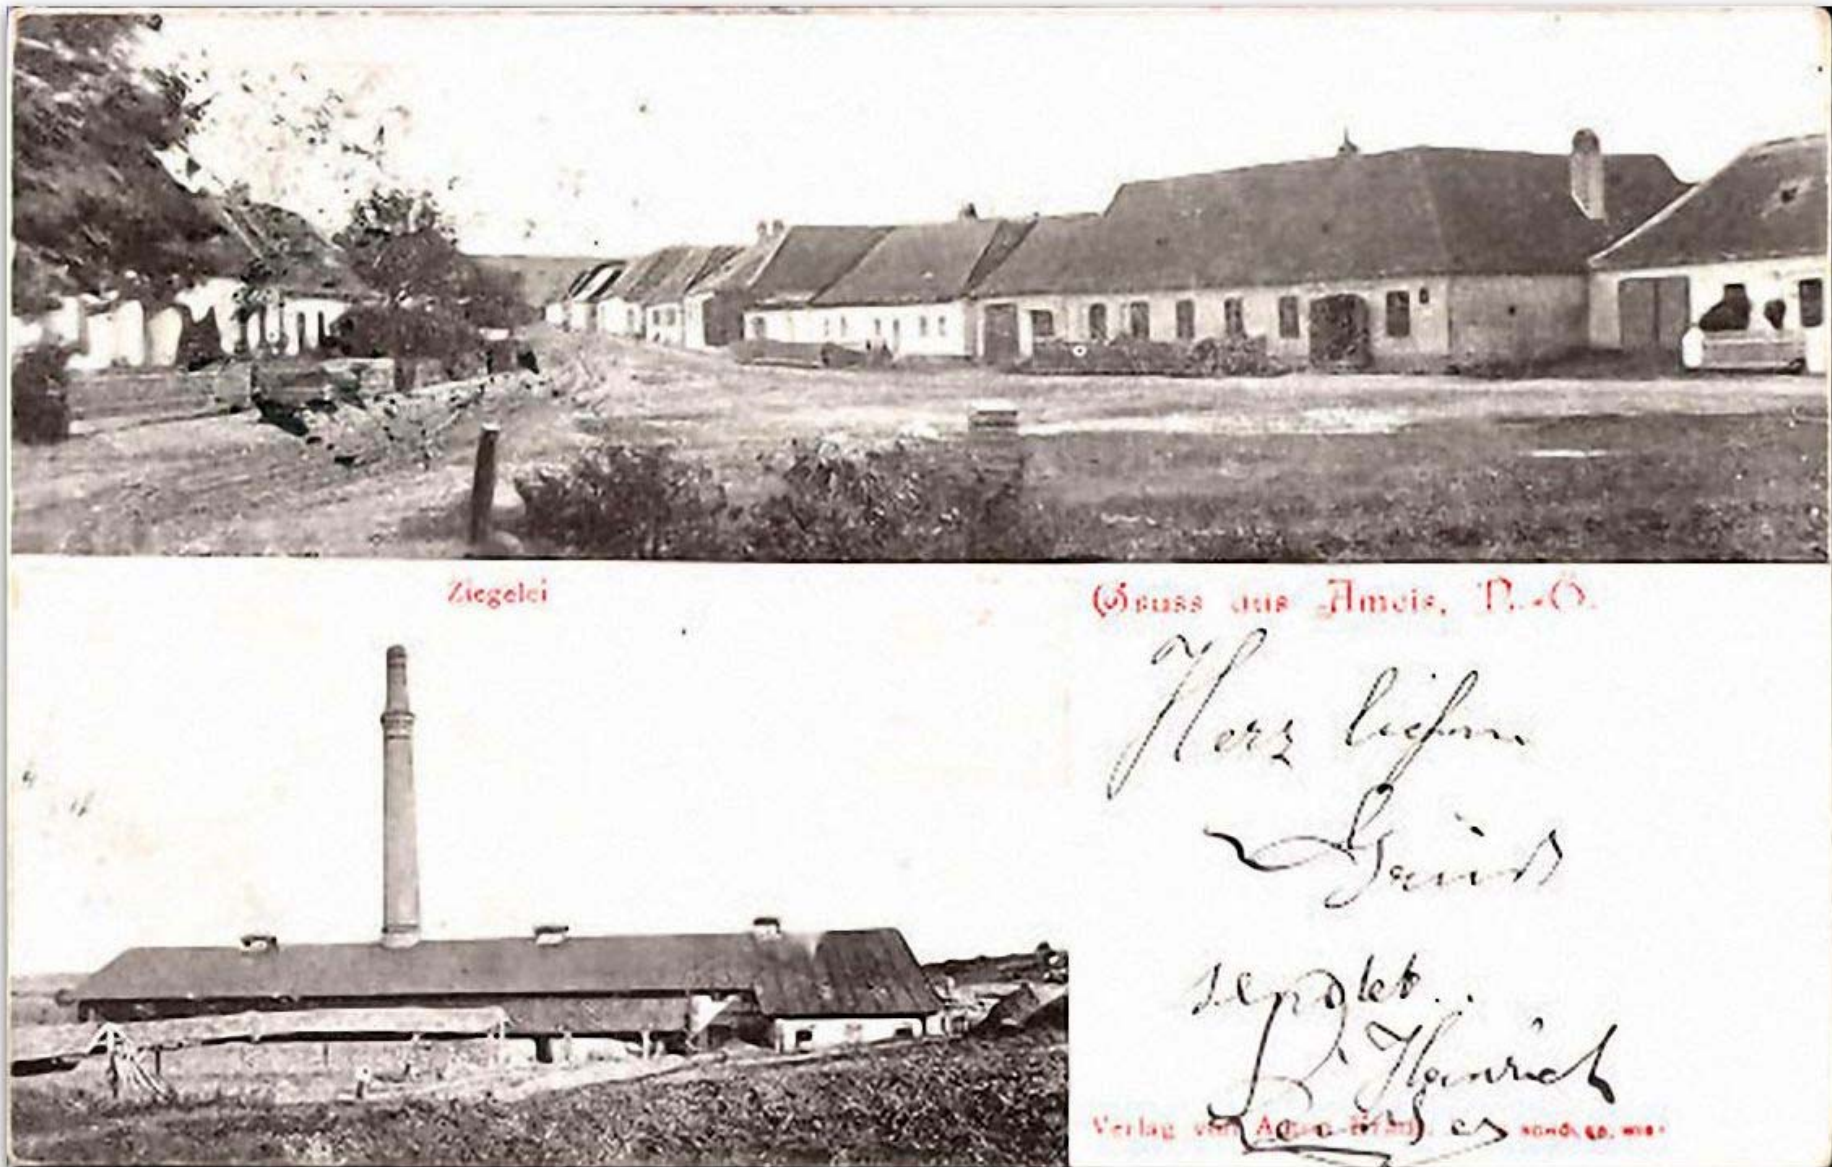 Ziegelei
Gruss aus Ameis, N.-Ö.
Herz lichen
Gruß
sendet
Heinrich
Verlag von